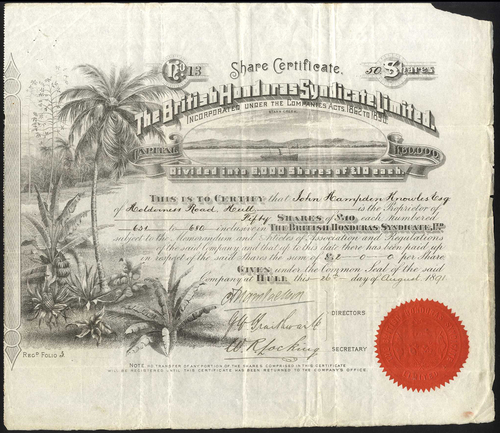 No 13
Share Certificate.
50 Shares
The British Honduras Syndicate Limited.
INCORPORATED UNDER THE COMPANIES ACTS, 1862 TO 1890.
CAPITAL
£60,000
Divided into 6,000 Shares of £10 each.
THIS IS TO CERTIFY that John Hampden Knowles Esq
of Holderness Road, Hull is the Proprietor of
Fifty SHARES of £10 each numbered
631 to 680 inclusive in THE BRITISH HONDURAS SYNDICATE, LTD
subject to the Memorandum and Articles of Association and Regulations
of the said Company and that up to this date there has been paid up
in respect of the said Shares the sum of £2 - 0 - 0 per Share
GIVEN under the Common Seal of the said
Company at HULL this 26th day of August 1891.
DIRECTORS
SECRETARY
REGD FOLIO 3.
NOTE NO TRANSFER OF ANY PORTION OF THE SHARES COMPRISED IN THIS CERTIFICATE
WILL BE REGISTERED UNTIL THIS CERTIFICATE HAS BEEN RETURNED TO THE COMPANY'S OFFICE.